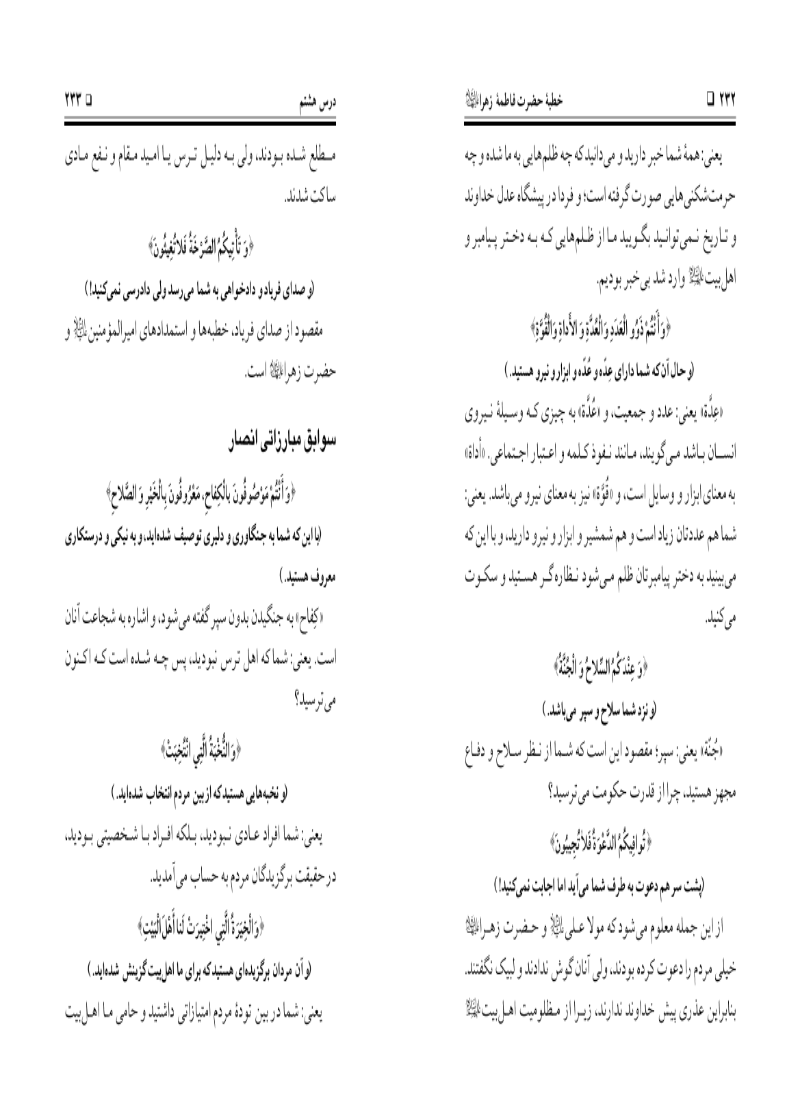 ۲۳۲ ❑ خطبهٔ حضرت فاطمهٔ زهرا
یعنی: همهٔ شما خبر دارید و می‌دانید که چه ظلم‌هایی به ما شده و چه
حرمت‌شکنی‌هایی صورت گرفته است؛ و فردا در پیشگاه عدل خداوند
و تاریخ نمی‌توانید بگویید ما از ظلم‌هایی که به دختر پیامبر و
اهل‌بیت وارد شد بی‌خبر بودیم.
﴿وَ أَنْتُمْ ذَوُو الْعَدَدِ وَ الْعُدَّةِ وَ الأَداةِ وَ الْقُوَّةِ﴾
(و حال آن‌که شما دارای عِدّه و عُدّه و ابزار و نیرو هستید.)
«عِدَّة» یعنی: عدد و جمعیت، و «عُدَّة» به چیزی که وسیلهٔ نیروی
انسان باشد می‌گویند، مانند نفوذ کلمه و اعتبار اجتماعی. «أداة»
به معنای ابزار و وسایل است، و «قُوَّة» نیز به معنای نیرو می‌باشد. یعنی:
شما هم عددتان زیاد است و هم شمشیر و ابزار و نیرو دارید، و با این که
می‌بینید به دختر پیامبرتان ظلم می‌شود نظاره‌گر هستید و سکوت
می‌کنید.
﴿وَ عِنْدَكُمُ السِّلاحُ وَ الْجُنَّةُ﴾
(و نزد شما سلاح و سپر می‌باشد.)
«جُنّة» یعنی: سپر؛ مقصود این است که شما از نظر سلاح و دفاع
مجهز هستید، چرا از قدرت حکومت می‌ترسید؟
﴿تُوافِيكُمُ الدَّعْوَةُ فَلاتُجِيبُونَ﴾
(پشت سر هم دعوت به طرف شما می‌آید اما اجابت نمی‌کنید!)
از این جمله معلوم می‌شود که مولا علی و حضرت زهرا
خیلی مردم را دعوت کرده بودند، ولی آنان گوش ندادند و لبیک نگفتند.
بنابراین عذری پیش خداوند ندارند، زیرا از مظلومیت اهل‌بیت
درس هشتم ❑ ۲۳۳
مطلع شده بودند، ولی به دلیل ترس یا امید مقام و نفع مادی
ساکت شدند.
﴿وَ تَأْتِيكُمُ الصَّرْخَةُ فَلاتُغِيثُونَ﴾
(و صدای فریاد و دادخواهی به شما می‌رسد ولی دادرسی نمی‌کنید!)
مقصود از صدای فریاد، خطبه‌ها و استمدادهای امیرالمؤمنین و
حضرت زهرا است.
سوابق مبارزاتی انصار
﴿وَ أَنْتُمْ مَوْصُوفُونَ بِالْكِفاحِ، مَعْرُوفُونَ بِالْخَيْرِ وَ الصَّلاحِ﴾
(با این که شما به جنگاوری و دلیری توصیف شده‌اید، و به نیکی و درستکاری
معروف هستید.)
«کِفاح» به جنگیدن بدون سپر گفته می‌شود، و اشاره به شجاعت آنان
است. یعنی: شما که اهل ترس نبودید، پس چه شده است که اکنون
می‌ترسید؟
﴿وَ النُّخْبَةُ الَّتِي انْتُخِبَتْ﴾
(و نخبه‌هایی هستید که از بین مردم انتخاب شده‌اید.)
یعنی: شما افراد عادی نبودید، بلکه افراد با شخصیتی بودید،
در حقیقت برگزیدگان مردم به حساب می‌آمدید.
﴿وَ الْخِيَرَةُ الَّتِي اخْتِيرَتْ لَنا أَهْلَ الْبَيْتِ﴾
(و آن مردان برگزیده‌ای هستید که برای ما اهل‌بیت گزینش شده‌اید.)
یعنی: شما در بین تودهٔ مردم امتیازاتی داشتید و حامی ما اهل‌بیت